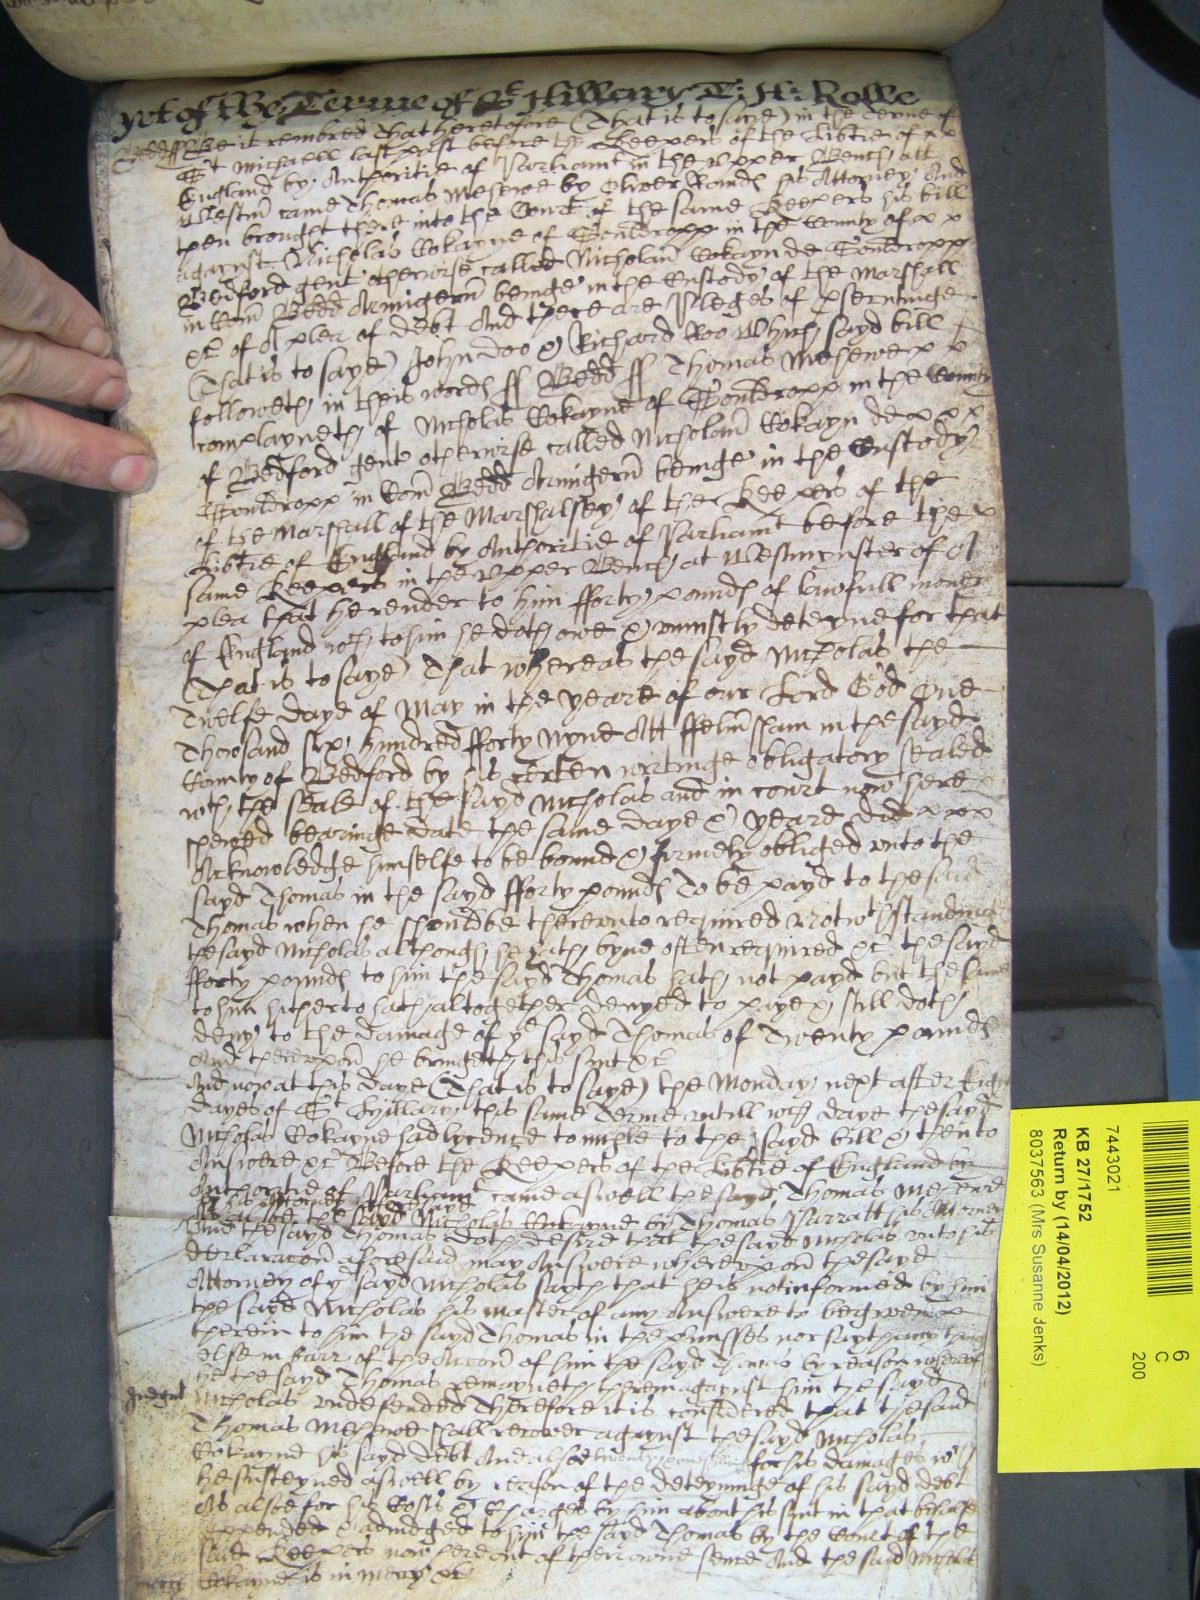 yet of the Terme of St Hillary T: H: Rolle
Bedd ss Be it remembred That heretofore (That is to saye) in the Terme of
St Michaell last past before the Keepers of the Libtie of x x
England by Authoritie of Parliamt in the Upper Bench att
Westmr came Thomas Mehewe by Oliver his Attorney And
then brought there into the Court of the same Keepers his bill
against Nicholas Cokayne of Souldropp in the County of x x
Bedford gent otherwise called Nicholam Cokayn de Souldropp
in Com Bedd Armigerm beinge in the Custody of the Marshall
&c of A plea of debt And there are Pleges of
(That is to saye) John Doo & Richard Roo Which sayd bill
followeth in theis words ss Bedd ss Thomas Mehewe x x
complayneth of Nicholas Cokayne of Souldropp in the County
of Bedford gent otherwise called Nicholam Cokayn de x x x
Souldropp in Com Bedd Armigerm beinge in the Custody
of the Marshall of the Marshalsey of the Keepers of the
Libtie of England by Authoritie of Parliamt before the x
same Keepers in the Upper Bench at Westminster of A
plea that he render to him fforty pounds of lawfull money
of England wch to him he doth owe & uniustly deteyne for that
(That is to saye) That whereas the sayd Nicholas the
Twelfe daye of May in the yeare of our Lord God One
Thowsand six hundred fforty Nyne Att in the sayd
County of Bedford by his certen writinge obligatory sealed
with the seale of the sayd Nicholas and in court now here
shewed bearinge date the same daye & yeare did x x x
Acknowledge himselfe to be bound & firmely obliged unto the
sayd Thomas in the sayd fforty pounds To be payd to the said
Thomas when he should be thereunto required Notwthstandinge
the sayd Nicholas although he hath byne often required &c the sayd
fforty pounds to him the sayd Thomas hath not payd but the same
to him hitherto hath altogether denyed to paye & still doth
deny to the damage of ye sayd Thomas of Twenty pounds
And thereupon he bringeth this suit &c
And now at this daye (That is to saye) the Monday next after Eight
dayes of St Hyllary this same Terme untill wch daye the sayd
Nicholas Cokayne had lycence to imple to the sayd bill & then to
Answere &c Before the Keepers of the Libtie of England by
Authoritie of Parliamt came aswell the sayd Thomas Mehewe
the sayd Nicholas Cokayne by Thomas Parratt his Attorney
And the sayd Thomas doth desire that the sayd Nicholas unto his
declaracon aforesaid may Answere whereupon the sayd
Attorney of ye sayd Nicholas sayth that he is not informed by him
the sayd Nicholas his master of any Answere to be
therein to him the sayd Thomas in the pmisses nor sayth any thing
else in barr of the Accon of him the sayd Thomas by reason whereof
the sayd Thomas remayneth therein against him the sayd
Judgmt Nicholas undefended Therefore it is considered that the said
Thomas Mehewe shall recover against the sayd Nicholas
Cokayne his sayd debt And alsoe for his damages wch
he susteyned aswell by reason of the deteyninge of his sayd debt
As alsoe for his Costs & Charges by him about his suit in that behalfe
expended & adiudged to him the sayd Thomas by the Court of the
said Keepers now here out of theire owne sence And the said Nichas
mercy Cokayne is in mercy &c
7443021
KB 27/1752
Return by (14/04/2012)
8037563 (Mrs Susanne Jenks)
6
C
200